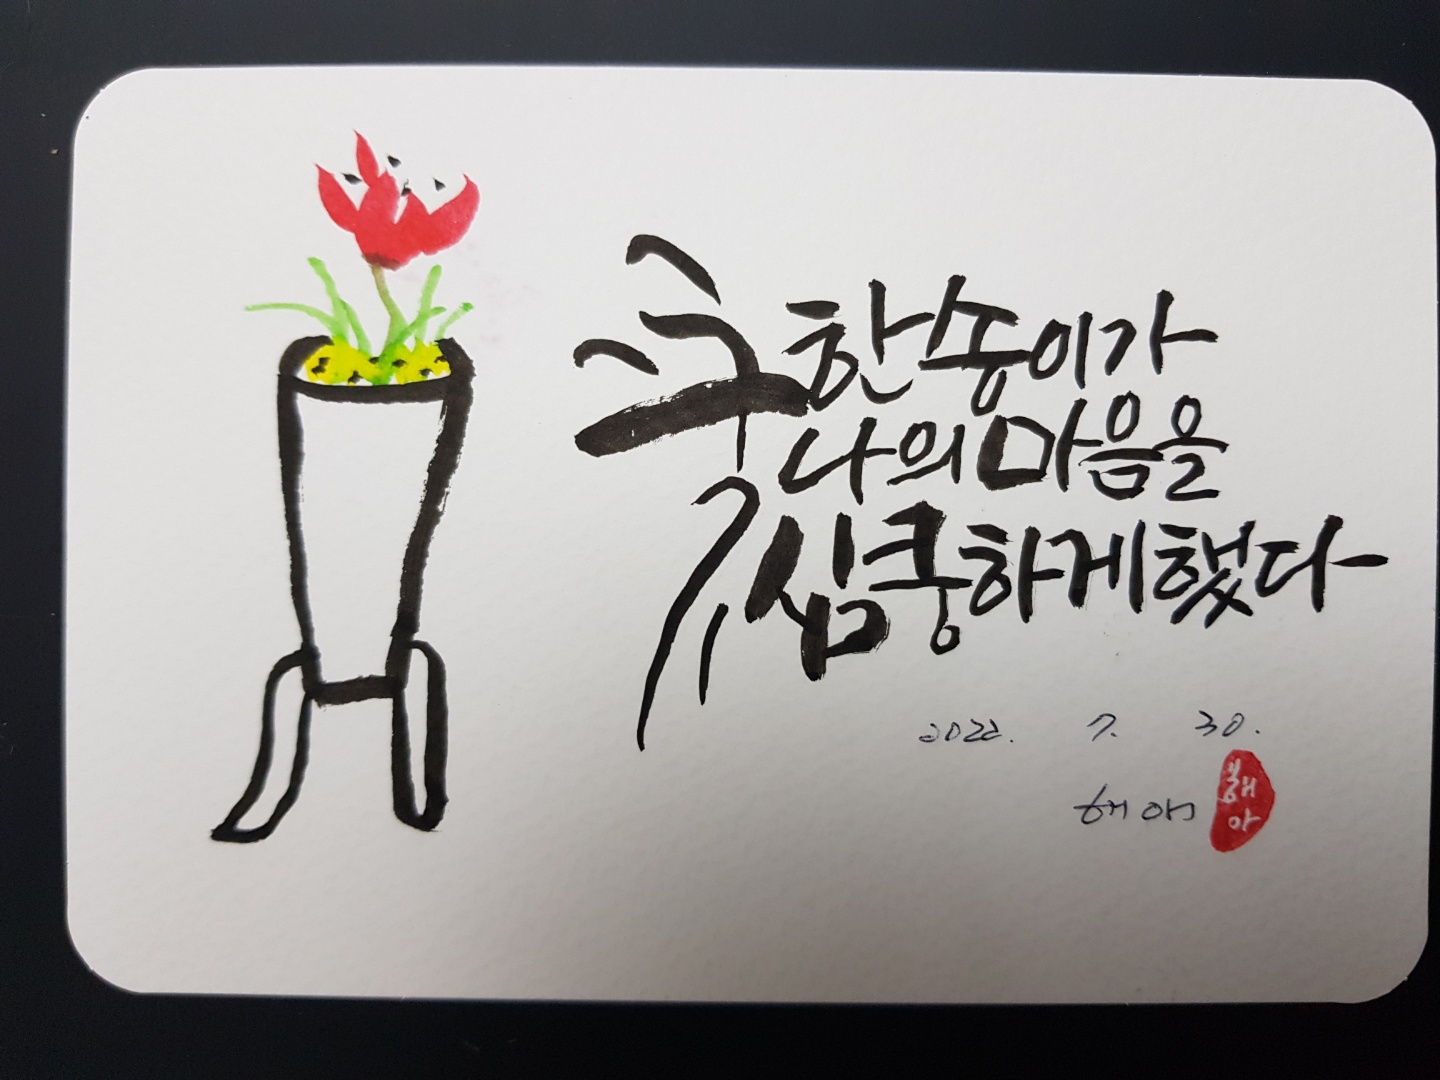 꽃 한송이가
나의 마음을
심쿵하게했다
2022. 7. 30.
혜야